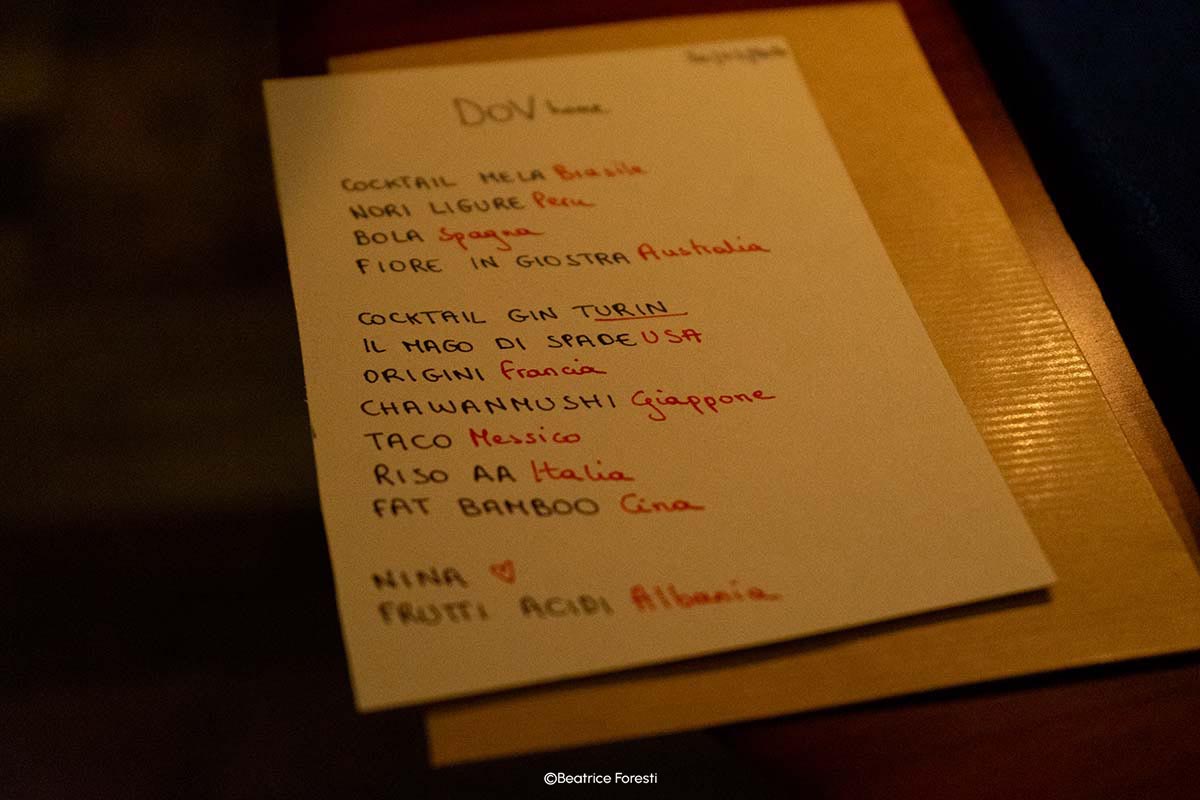 DOV home
COCKTAIL MELA Brasile
NORI LIGURE Peru
BOLA Spagna
FIORE IN GIOSTRA Australia
COCKTAIL GIN TURIN
IL MAGO DI SPADE USA
ORIGINI Francia
CHAWANMUSHI Giappone
TACO Messico
RISO AA Italia
FAT BAMBOO Cina
NINA ♡
FRUTTI ACIDI Albania
©Beatrice Foresti